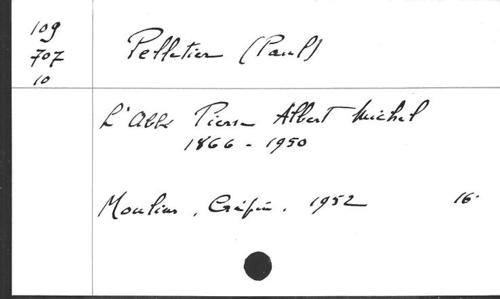 109
707
10
Pelletier (Paul)
L'Abbé Pierre Albert Michel
1866 - 1950
Moulins, Crépin, 1952 16°